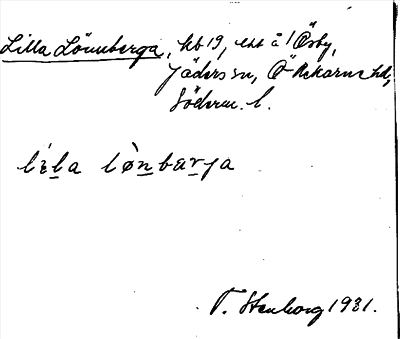 Lilla Lönnberga, kb 19, ett å 1 Ösby,
Jäders sn, Ö Rekarne hd,
Söderm. l.
lila lønbærja
T. Stenborg 1931.